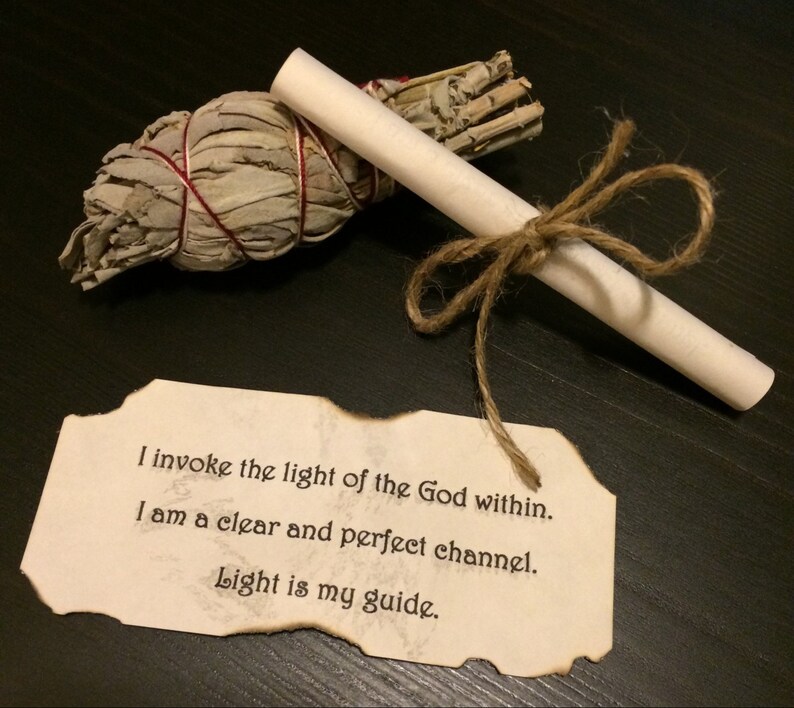 I invoke the light of the God within.
I am a clear and perfect channel.
Light is my guide.